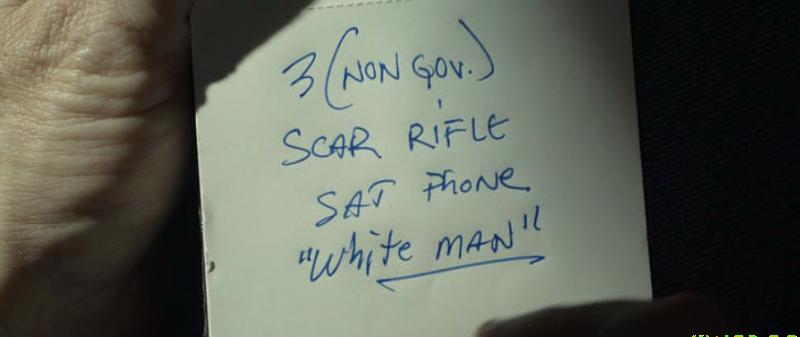 3 (NON GOV.)
SCAR RIFLE
SAT PHONE
"White MAN"